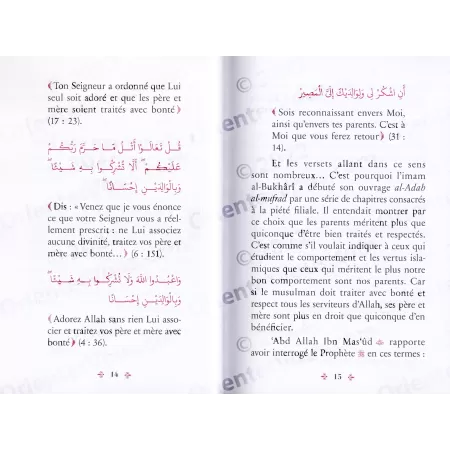 ﴾ Ton Seigneur a ordonné que Lui
seul soit adoré et que les père et
mère soient traités avec bonté ﴿
(17 : 23).
قُلْ تَعَالَوْا أَتْلُ مَا حَرَّمَ رَبُّكُمْ
عَلَيْكُمْ أَلَّا تُشْرِكُوا بِهِ شَيْئًا
وَبِالْوَالِدَيْنِ إِحْسَانًا
﴾ Dis : « Venez que je vous énonce
ce que votre Seigneur vous a réel-
lement prescrit : ne Lui associez
aucune divinité, traitez vos père et
mère avec bonté… ﴿ (6 : 151).
وَاعْبُدُوا اللَّهَ وَلَا تُشْرِكُوا بِهِ شَيْئًا
وَبِالْوَالِدَيْنِ إِحْسَانًا
﴾ Adorez Allah sans rien Lui asso-
cier et traitez vos père et mère avec
bonté ﴿ (4 : 36).
14
أَنِ اشْكُرْ لِي وَلِوَالِدَيْكَ إِلَيَّ الْمَصِيرُ
﴾ Sois reconnaissant envers Moi,
ainsi qu'envers tes parents. C'est à
Moi que vous ferez retour ﴿ (31 :
14).
Et les versets allant dans ce sens
sont nombreux… C'est pourquoi l'imam
al-Bukhârî a débuté son ouvrage al-Adab
al-mufrad par une série de chapitres consacrés
à la piété filiale. Il entendait montrer par
ce choix que les parents méritent plus que
quiconque d'être bien traités et respectés.
C'est comme s'il voulait indiquer à ceux qui
étudient le comportement et les vertus isla-
miques que ceux qui méritent le plus notre
bon comportement sont nos parents. Car
si le musulman doit traiter avec bonté et
respect tous les serviteurs d'Allah, ses père et
mère sont plus en droit que quiconque d'en
bénéficier.
'Abd Allah Ibn Mas'ûd rapporte
avoir interrogé le Prophète ﷺ en ces termes :
15